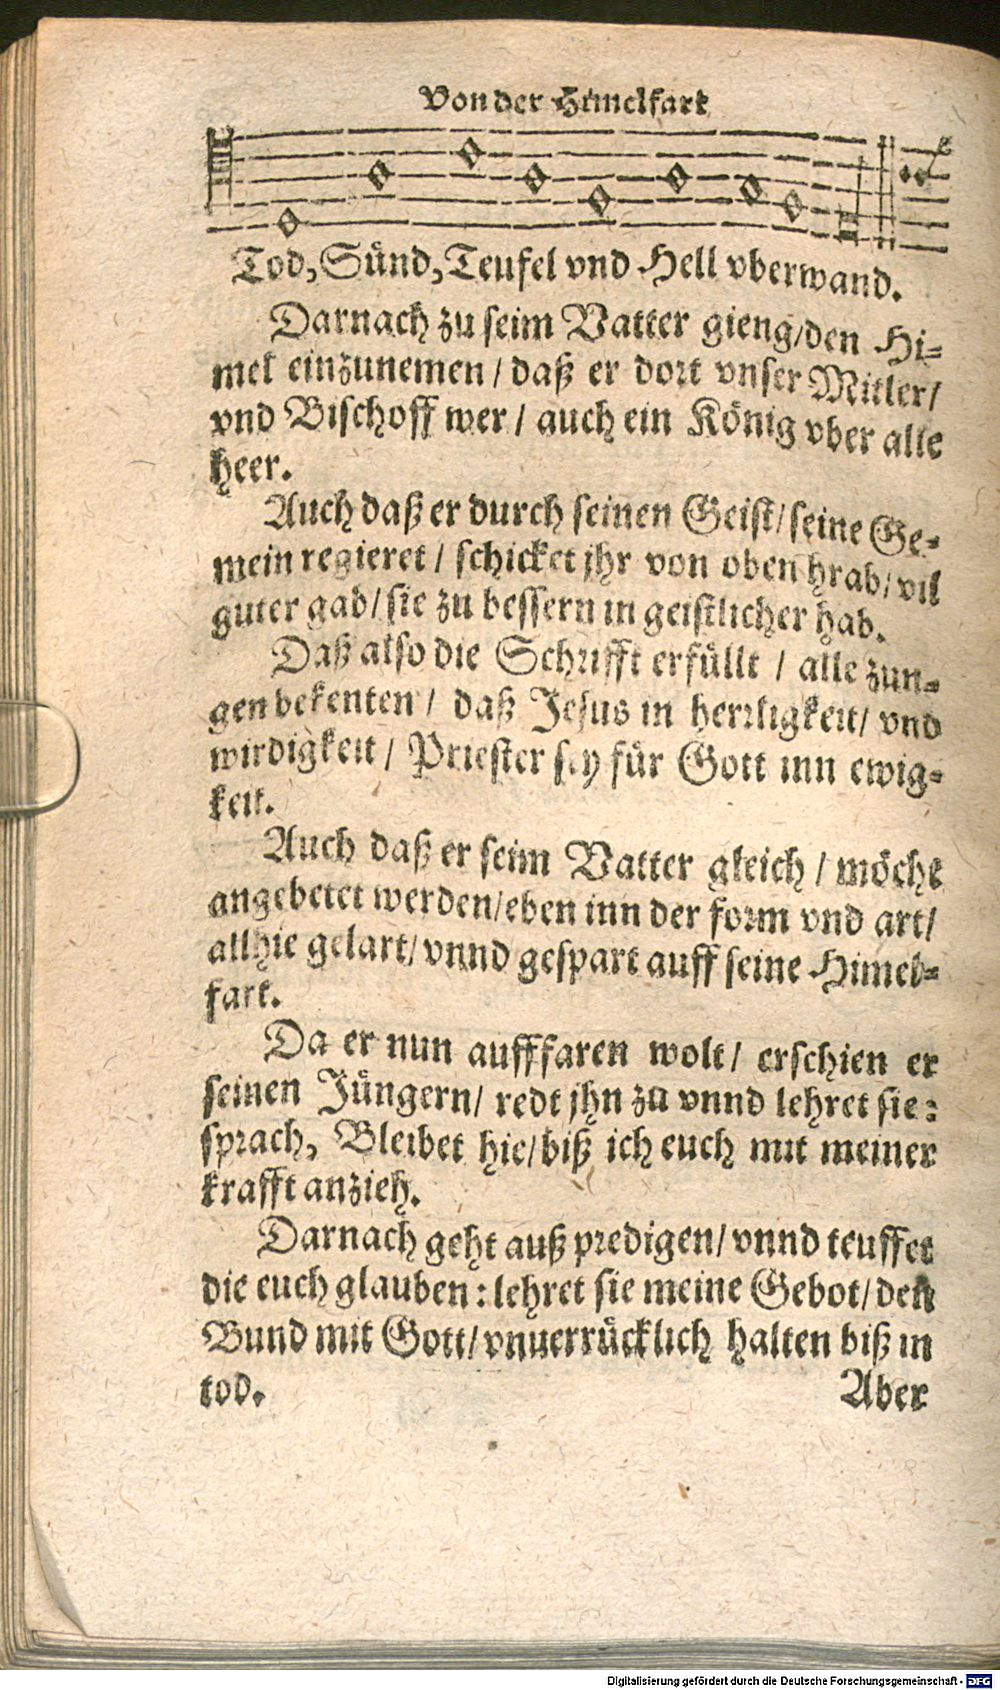 Von der Himelfart
Tod, Sünd, Teufel vnd Hell vberwand.
Darnach zu seim Vatter gieng/den Hi-
mel einzunemen / daß er dort vnser Mitler/
vnd Bischoff wer / auch ein König vber alle
heer.
Auch daß er durch seinen Geist/seine Ge-
mein regieret / schicket jhr von oben hrab/ vil
guter gab/ sie zu bessern in geistlicher hab.
Daß also die Schrifft erfüllt / alle zun-
gen bekenten / daß Jesus in herrligkeit/ vnd
wirdigkeit / Priester sey für Gott inn ewig-
keit.
Auch daß er seim Vatter gleich / möcht
angebetet werden/eben inn der form vnd art/
allhie gelart/ vnnd gespart auff seine Himel-
fart.
Da er nun aufffaren wolt/ erschien er
seinen Jüngern/ redt jhn zu vnnd lehret sie:
sprach, Bleibet hie/biß ich euch mit meiner
krafft anzieh.
Darnach geht auß predigen/ vnnd teuffet
die euch glauben: lehret sie meine Gebot/den
Bund mit Gott/ vnuerrücklich halten biß in
tod.
Aber
Digitalisierung gefördert durch die Deutsche Forschungsgemeinschaft - DFG